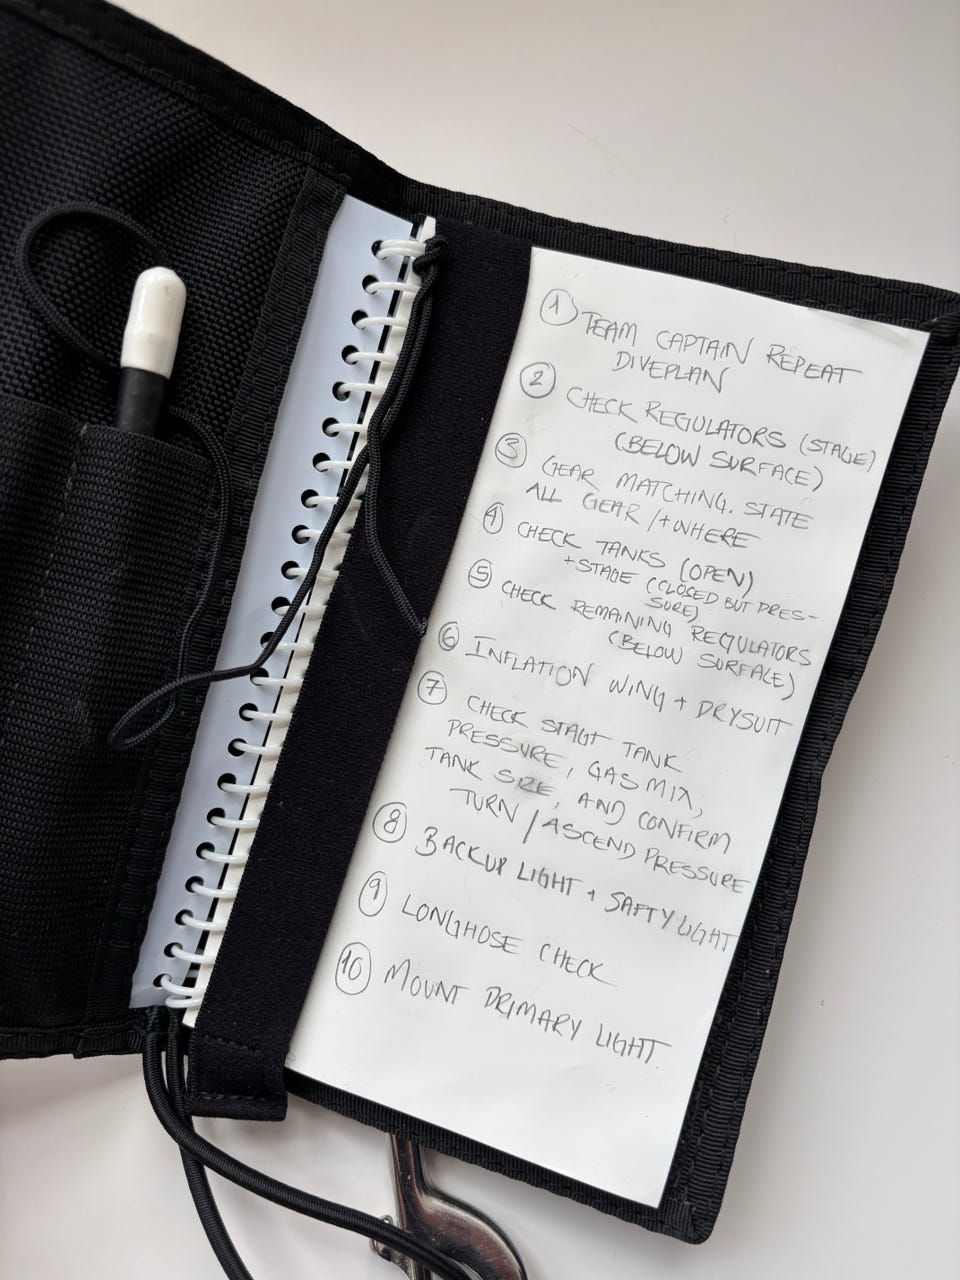 1 TEAM CAPTAIN REPEAT
DIVEPLAN
2 CHECK REGULATORS (STAGE)
(BELOW SURFACE)
3 GEAR MATCHING. STATE
ALL GEAR /+WHERE
4 CHECK TANKS (OPEN)
+STAGE (CLOSED BUT PRES-
SURE)
5 CHECK REMAINING REGULATORS
(BELOW SURFACE)
6 INFLATION WING + DRYSUIT
7 CHECK STAGE TANK
PRESSURE, GAS MIX,
TANK SIZE, AND CONFIRM
TURN / ASCEND PRESSURE
8 BACKUP LIGHT + SAFTY LIGHT
9 LONGHOSE CHECK
10 MOUNT PRIMARY LIGHT